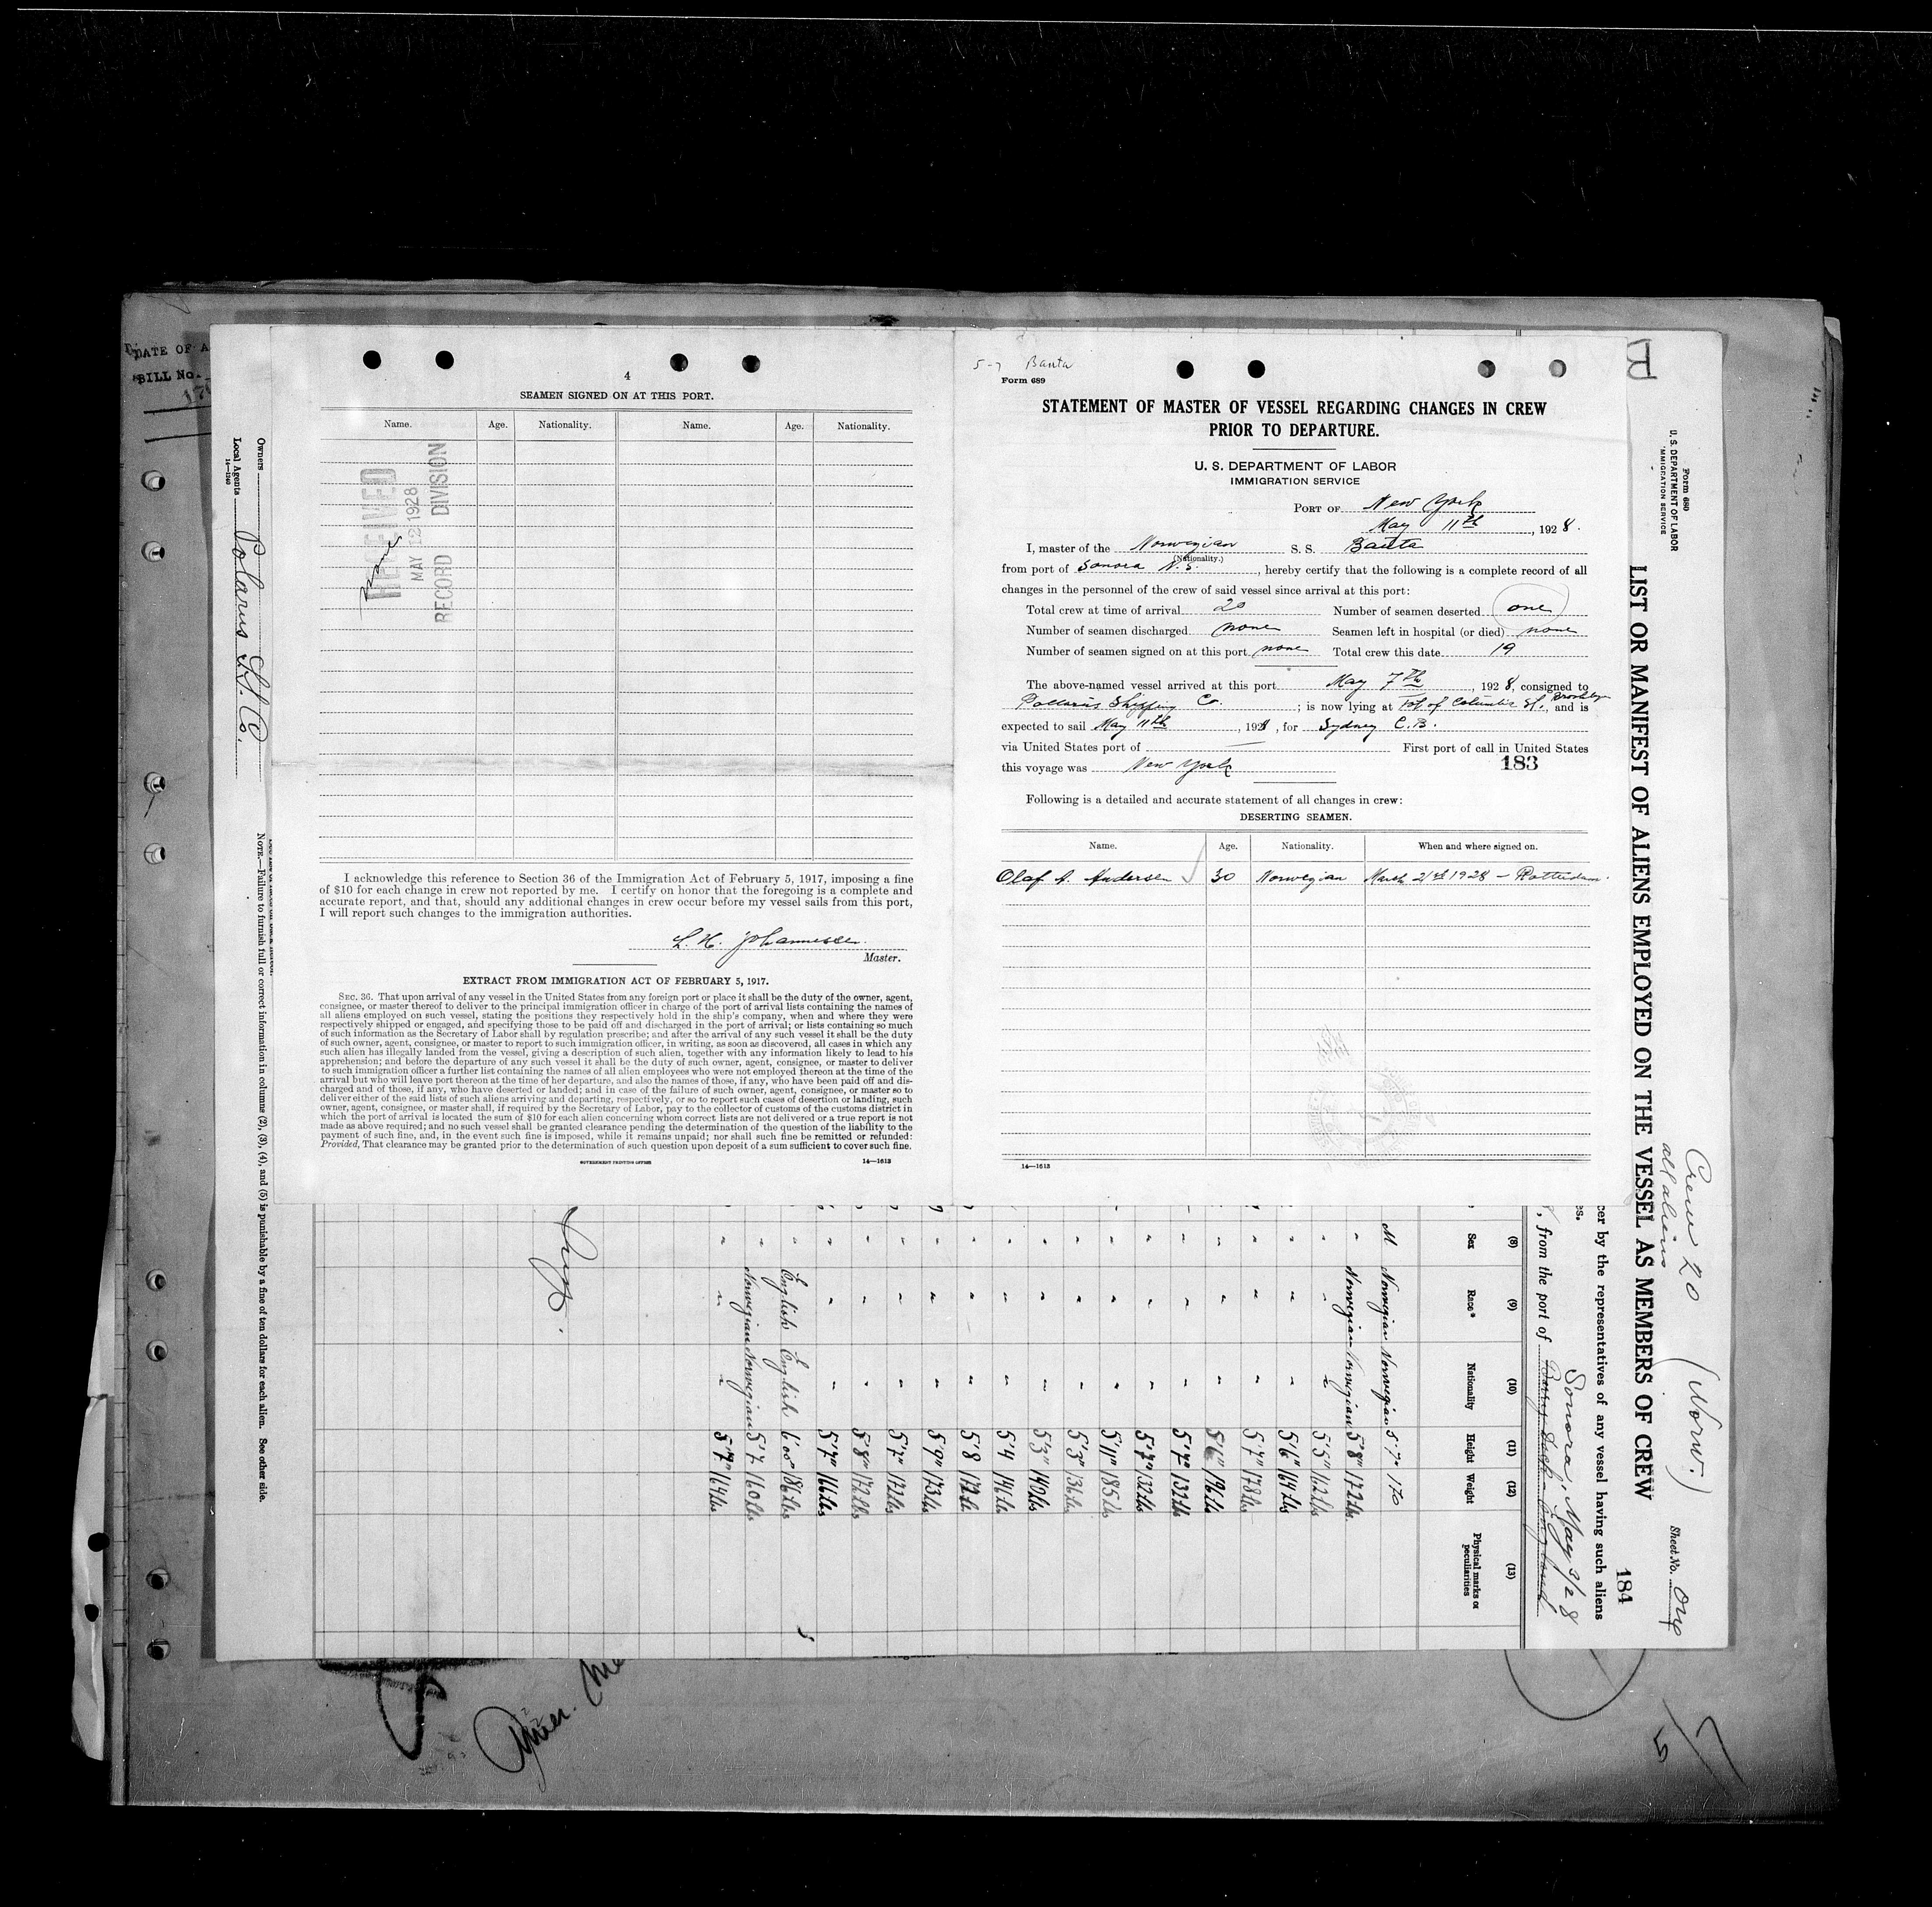 DATE OF A
BILL No.
Owners
Local Agents Polarus SS. Co.
14—1240
NOTE.—Failure to furnish full or correct information in columns (2), (3), (4), and (5) is punishable by a fine of ten dollars for each alien. See other side.
4
SEAMEN SIGNED ON AT THIS PORT.
Name. Age. Nationality. Name. Age. Nationality.
RECEIVED
MAY 12 1928
RECORD DIVISION
I acknowledge this reference to Section 36 of the Immigration Act of February 5, 1917, imposing a fine
of $10 for each change in crew not reported by me. I certify on honor that the foregoing is a complete and
accurate report, and that, should any additional changes in crew occur before my vessel sails from this port,
I will report such changes to the immigration authorities.
L. H. Johannessen
Master.
EXTRACT FROM IMMIGRATION ACT OF FEBRUARY 5, 1917.
SEC. 36. That upon arrival of any vessel in the United States from any foreign port or place it shall be the duty of the owner, agent,
consignee, or master thereof to deliver to the principal immigration officer in charge of the port of arrival lists containing the names of
all aliens employed on such vessel, stating the positions they respectively hold in the ship's company, when and where they were
respectively shipped or engaged, and specifying those to be paid off and discharged in the port of arrival; or lists containing so much
of such information as the Secretary of Labor shall by regulation prescribe; and after the arrival of any such vessel it shall be the duty
of such owner, agent, consignee, or master to report to such immigration officer, in writing, as soon as discovered, all cases in which any
such alien has illegally landed from the vessel, giving a description of such alien, together with any information likely to lead to his
apprehension; and before the departure of any such vessel it shall be the duty of such owner, agent, consignee, or master to deliver
to such immigration officer a further list containing the names of all alien employees who were not employed thereon at the time of the
arrival but who will leave port thereon at the time of her departure, and also the names of those, if any, who have been paid off and dis-
charged and of those, if any, who have deserted or landed; and in case of the failure of such owner, agent, consignee, or master so to
deliver either of the said lists of such aliens arriving and departing, respectively, or so to report such cases of desertion or landing, such
owner, agent, consignee, or master shall, if required by the Secretary of Labor, pay to the collector of customs of the customs district in
which the port of arrival is located the sum of $10 for each alien concerning whom correct lists are not delivered or a true report is not
made as above required; and no such vessel shall be granted clearance pending the determination of the question of the liability to the
payment of such fine, and, in the event such fine is imposed, while it remains unpaid; nor shall such fine be remitted or refunded:
Provided, That clearance may be granted prior to the determination of such question upon deposit of a sum sufficient to cover such fine.
GOVERNMENT PRINTING OFFICE 14—1613
5-7 Banta
Form 689
STATEMENT OF MASTER OF VESSEL REGARDING CHANGES IN CREW
PRIOR TO DEPARTURE.
U. S. DEPARTMENT OF LABOR
IMMIGRATION SERVICE
PORT OF New York
May 11th, 1928.
I, master of the Norwegian S. S. Banta
(Nationality.)
from port of Sonora N.S., hereby certify that the following is a complete record of all
changes in the personnel of the crew of said vessel since arrival at this port:
Total crew at time of arrival 20 Number of seamen deserted one
Number of seamen discharged none Seamen left in hospital (or died) none
Number of seamen signed on at this port none Total crew this date 19
The above-named vessel arrived at this port May 7th, 1928, consigned to
Polarus Shipping Co.; is now lying at Ft of Columbia St., Brooklyn and is
expected to sail May 11th, 1928, for Sydney C.B.
via United States port of — First port of call in United States
this voyage was New York
183
Following is a detailed and accurate statement of all changes in crew:
DESERTING SEAMEN.
Name. Age. Nationality. When and where signed on.
Olaf A. Andersen 30 Norwegian March 21st 1928 — Rotterdam.
14—1613
Form 680
U. S. DEPARTMENT OF LABOR
IMMIGRATION SERVICE
LIST OR MANIFEST OF ALIENS EMPLOYED ON THE VESSEL AS MEMBERS OF CREW
Crew 20 (Norw.)
all aliens
Sheet No. One
184
cer by the representatives of any vessel having such aliens
es.
Sonora, May 3/28
, from the port of
(8) (9) (10) (11) (12) (13)
Sex Race* Nationality Height Weight Physical marks or peculiarities
M Norwegian Norwegian 5'7" 170
" Norwegian Norwegian 5'8" 172lbs
" " " 5'5" 162lbs
" " " 5'6" 164lbs
" " " 5'7" 178lbs
" " " 5'6" 196lbs
" " " 5'7" 132lbs
" " " 5'7" 132lbs
" " " 5'11" 185lbs
" " " 5'3" 136lbs
" " " 5'3" 140lbs
" " " 5'4 146lbs
" " " 5'8 172lbs
" " " 5'9" 173lbs
" " " 5'7" 172lbs
" " " 5'8" 172lbs
" " " 5'7" 166lbs
" English English 6'00" 186lbs
" Norwegian Norwegian 5'7 160lbs
" " " 5'7" 164lbs
5/7